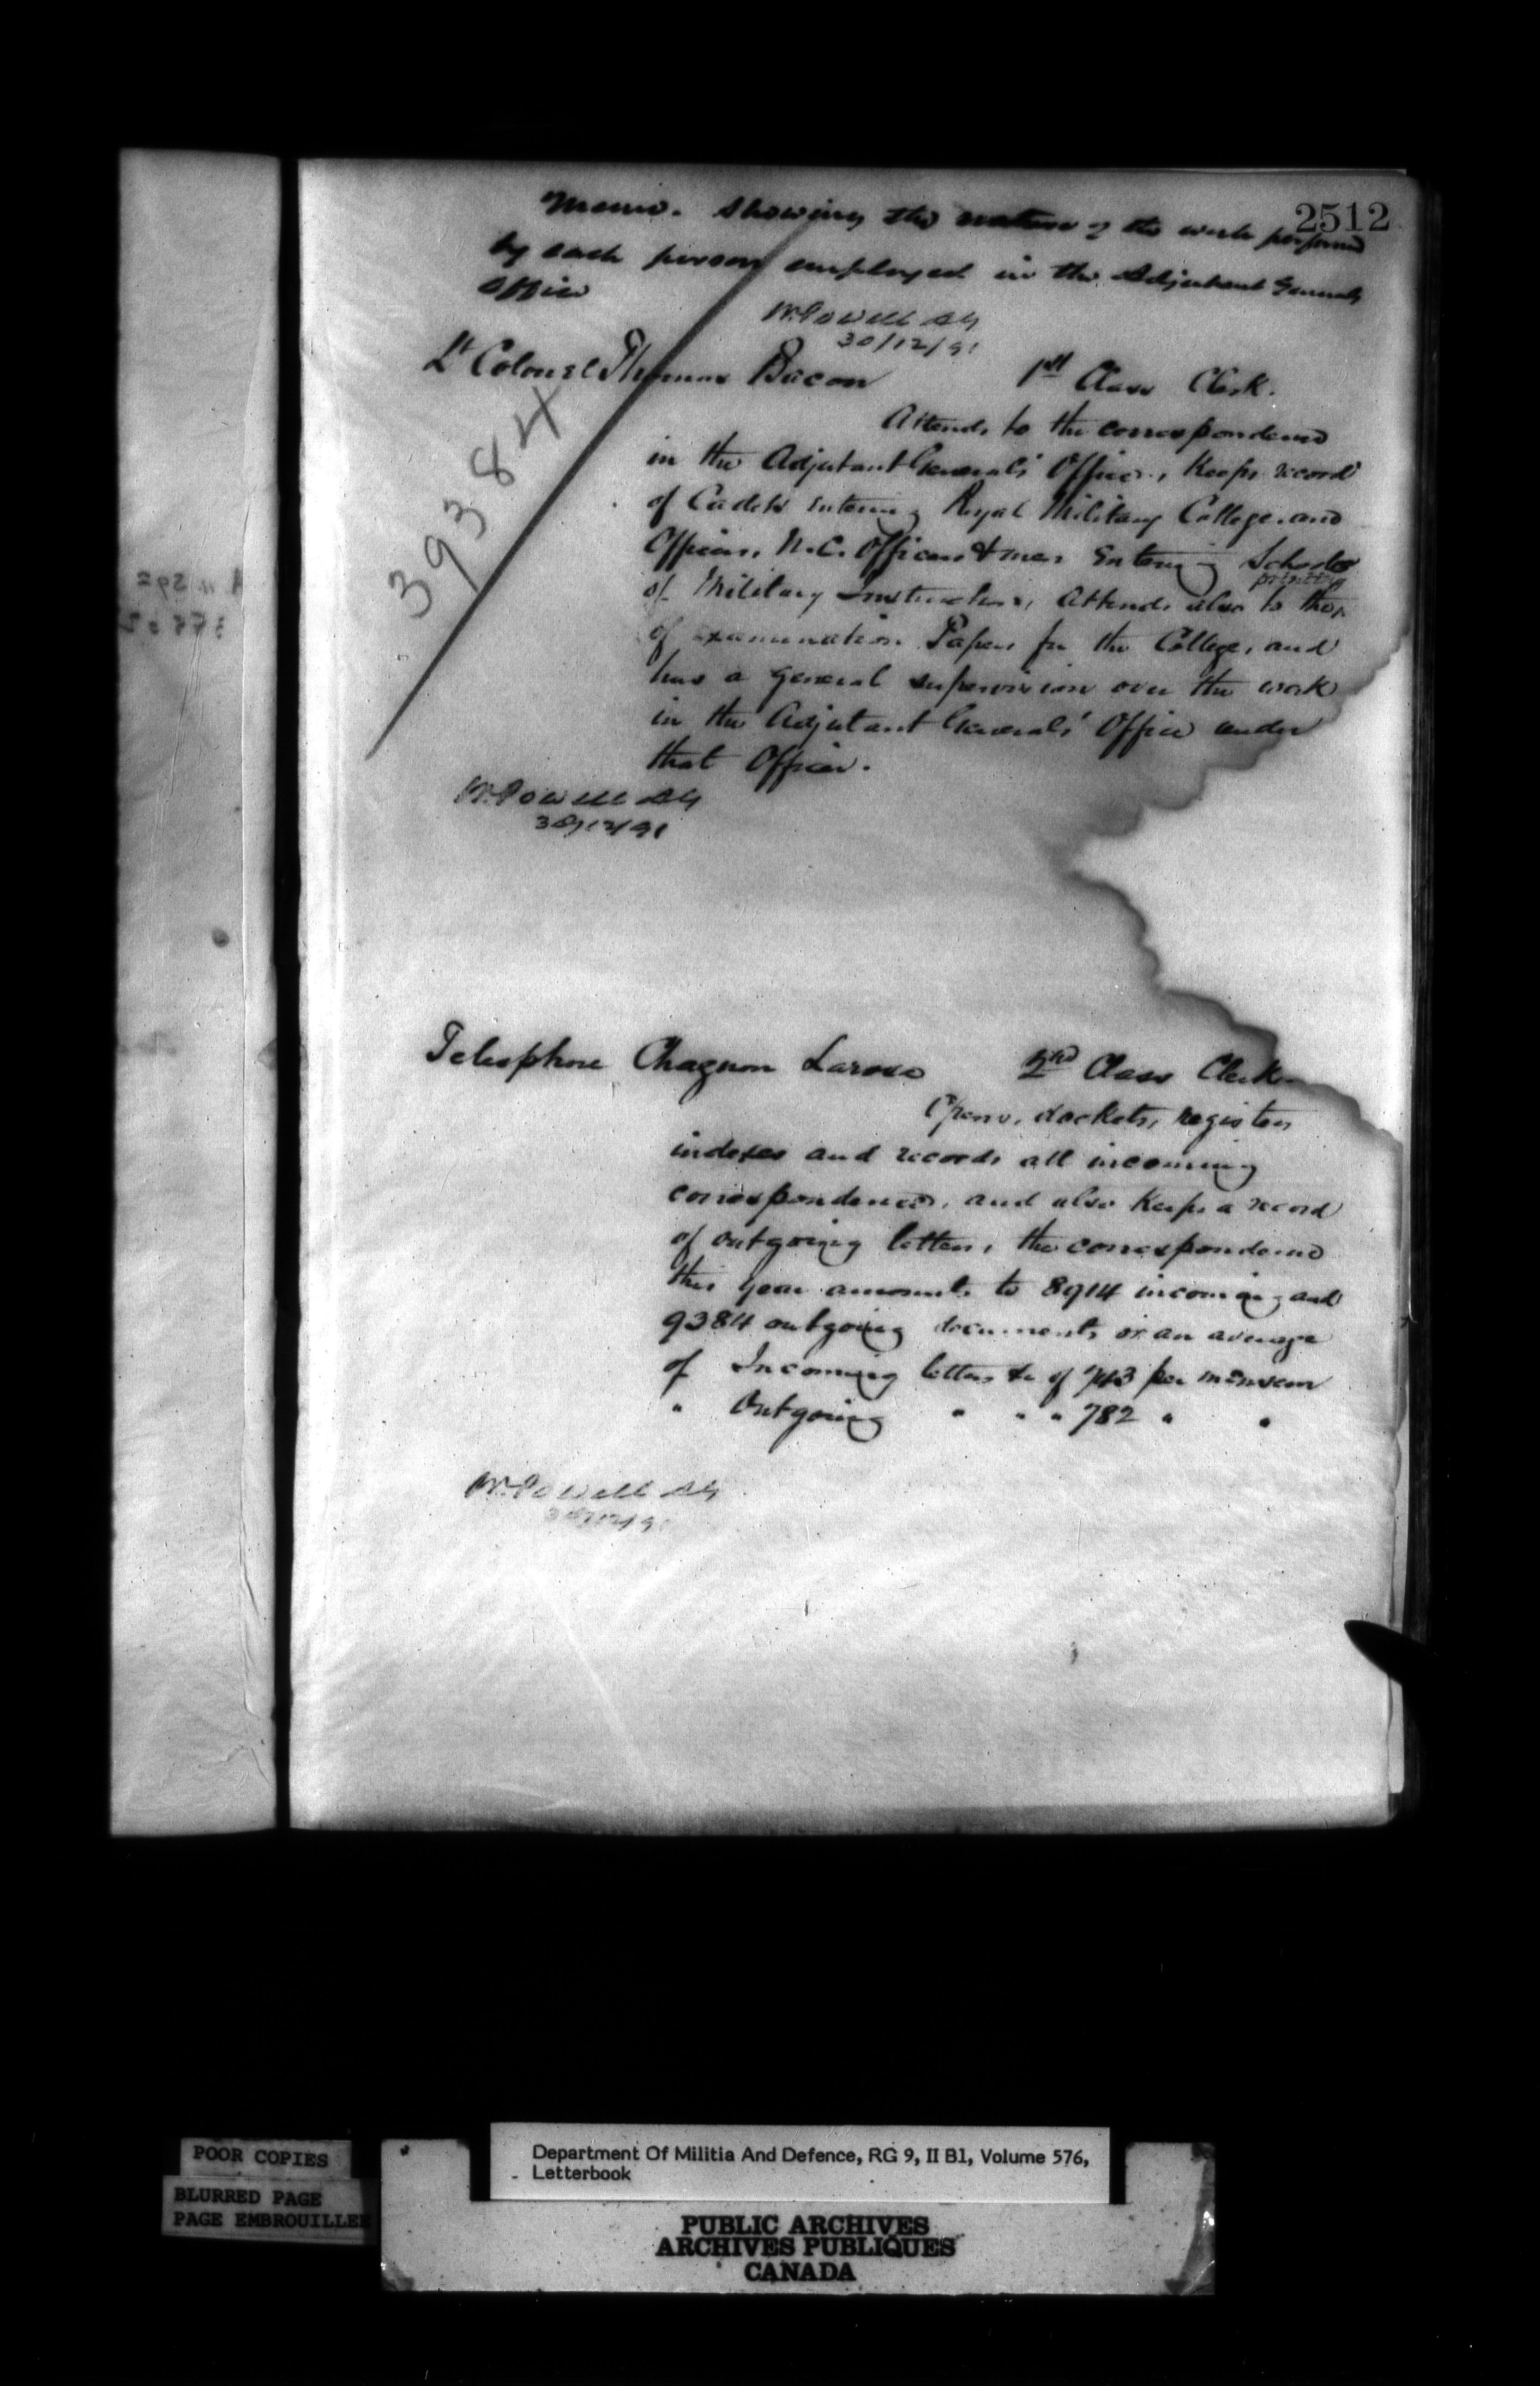 2512
Memo. Showing the nature of the work performed
by each person employed in the Adjutant Generals
Office
W. Powell AG
30/12/91
Lt Colonel Thomas Bacon 1st Class Clerk.
39384
Attends to the correspondence
in the Adjutant Generals' Office, Keeps record
of Cadets entering Royal Military College and
Officers, N.C. Officers & men Entering Schools
of Military Instruction, Attends also to the printing
of Examination Papers for the College, and
has a general supervision over the work
in the Adjutant Generals' Office under
that Officer.
W. Powell AG
30/12/91
Telesphore Chagnon Larose 2nd Class Clerk
Opens, dockets, registers
indexes and records all incoming
correspondence, and also Keeps a record
of outgoing letters, the correspondence
this year amounts to 8914 incoming and
9384 outgoing documents or an average
of Incoming letters &c of 743 per mensem
" Outgoing " " " 782 " "
W. Powell AG
30/12/91
POOR COPIES
BLURRED PAGE
PAGE EMBROUILLEE
Department Of Militia And Defence, RG 9, II B1, Volume 576,
Letterbook
PUBLIC ARCHIVES
ARCHIVES PUBLIQUES
CANADA